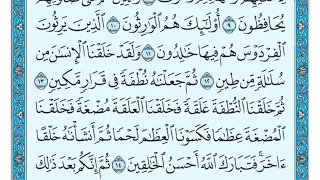 يُحَافِظُونَ ٩ أُوْلَٰٓئِكَ هُمُ ٱلْوَٰرِثُونَ ١٠ ٱلَّذِينَ يَرِثُونَ
ٱلْفِرْدَوْسَ هُمْ فِيهَا خَٰلِدُونَ ١١ وَلَقَدْ خَلَقْنَا ٱلْإِنسَٰنَ مِن
سُلَٰلَةٍ مِّن طِينٍ ١٢ ثُمَّ جَعَلْنَٰهُ نُطْفَةً فِى قَرَارٍ مَّكِينٍ ١٣
ثُمَّ خَلَقْنَا ٱلنُّطْفَةَ عَلَقَةً فَخَلَقْنَا ٱلْعَلَقَةَ مُضْغَةً فَخَلَقْنَا
ٱلْمُضْغَةَ عِظَٰمًا فَكَسَوْنَا ٱلْعِظَٰمَ لَحْمًا ثُمَّ أَنشَأْنَٰهُ خَلْقًا
ءَاخَرَ فَتَبَارَكَ ٱللَّهُ أَحْسَنُ ٱلْخَٰلِقِينَ ١٤ ثُمَّ إِنَّكُم بَعْدَ ذَٰلِكَ